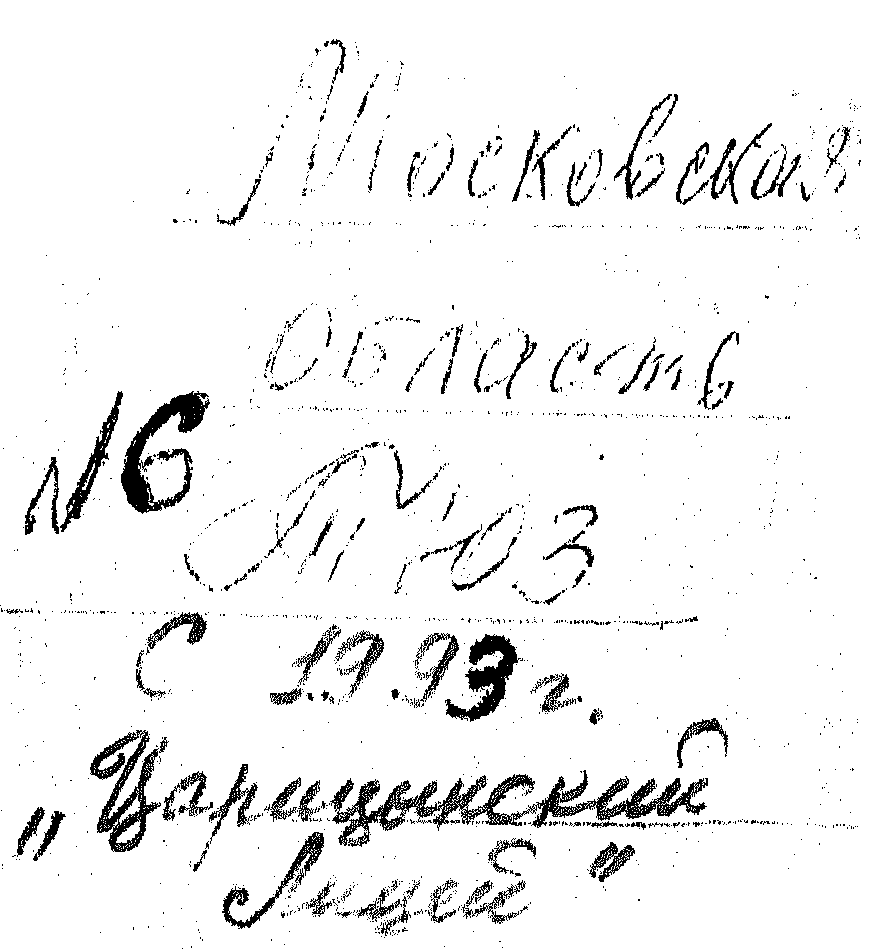 Московская
область
№6
ТЮЗ
С 1993 г.
„Царицынский
Лицей"